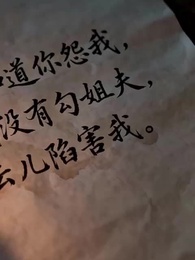 道你怨我，
没有勾姐夫，
云儿陷害我。